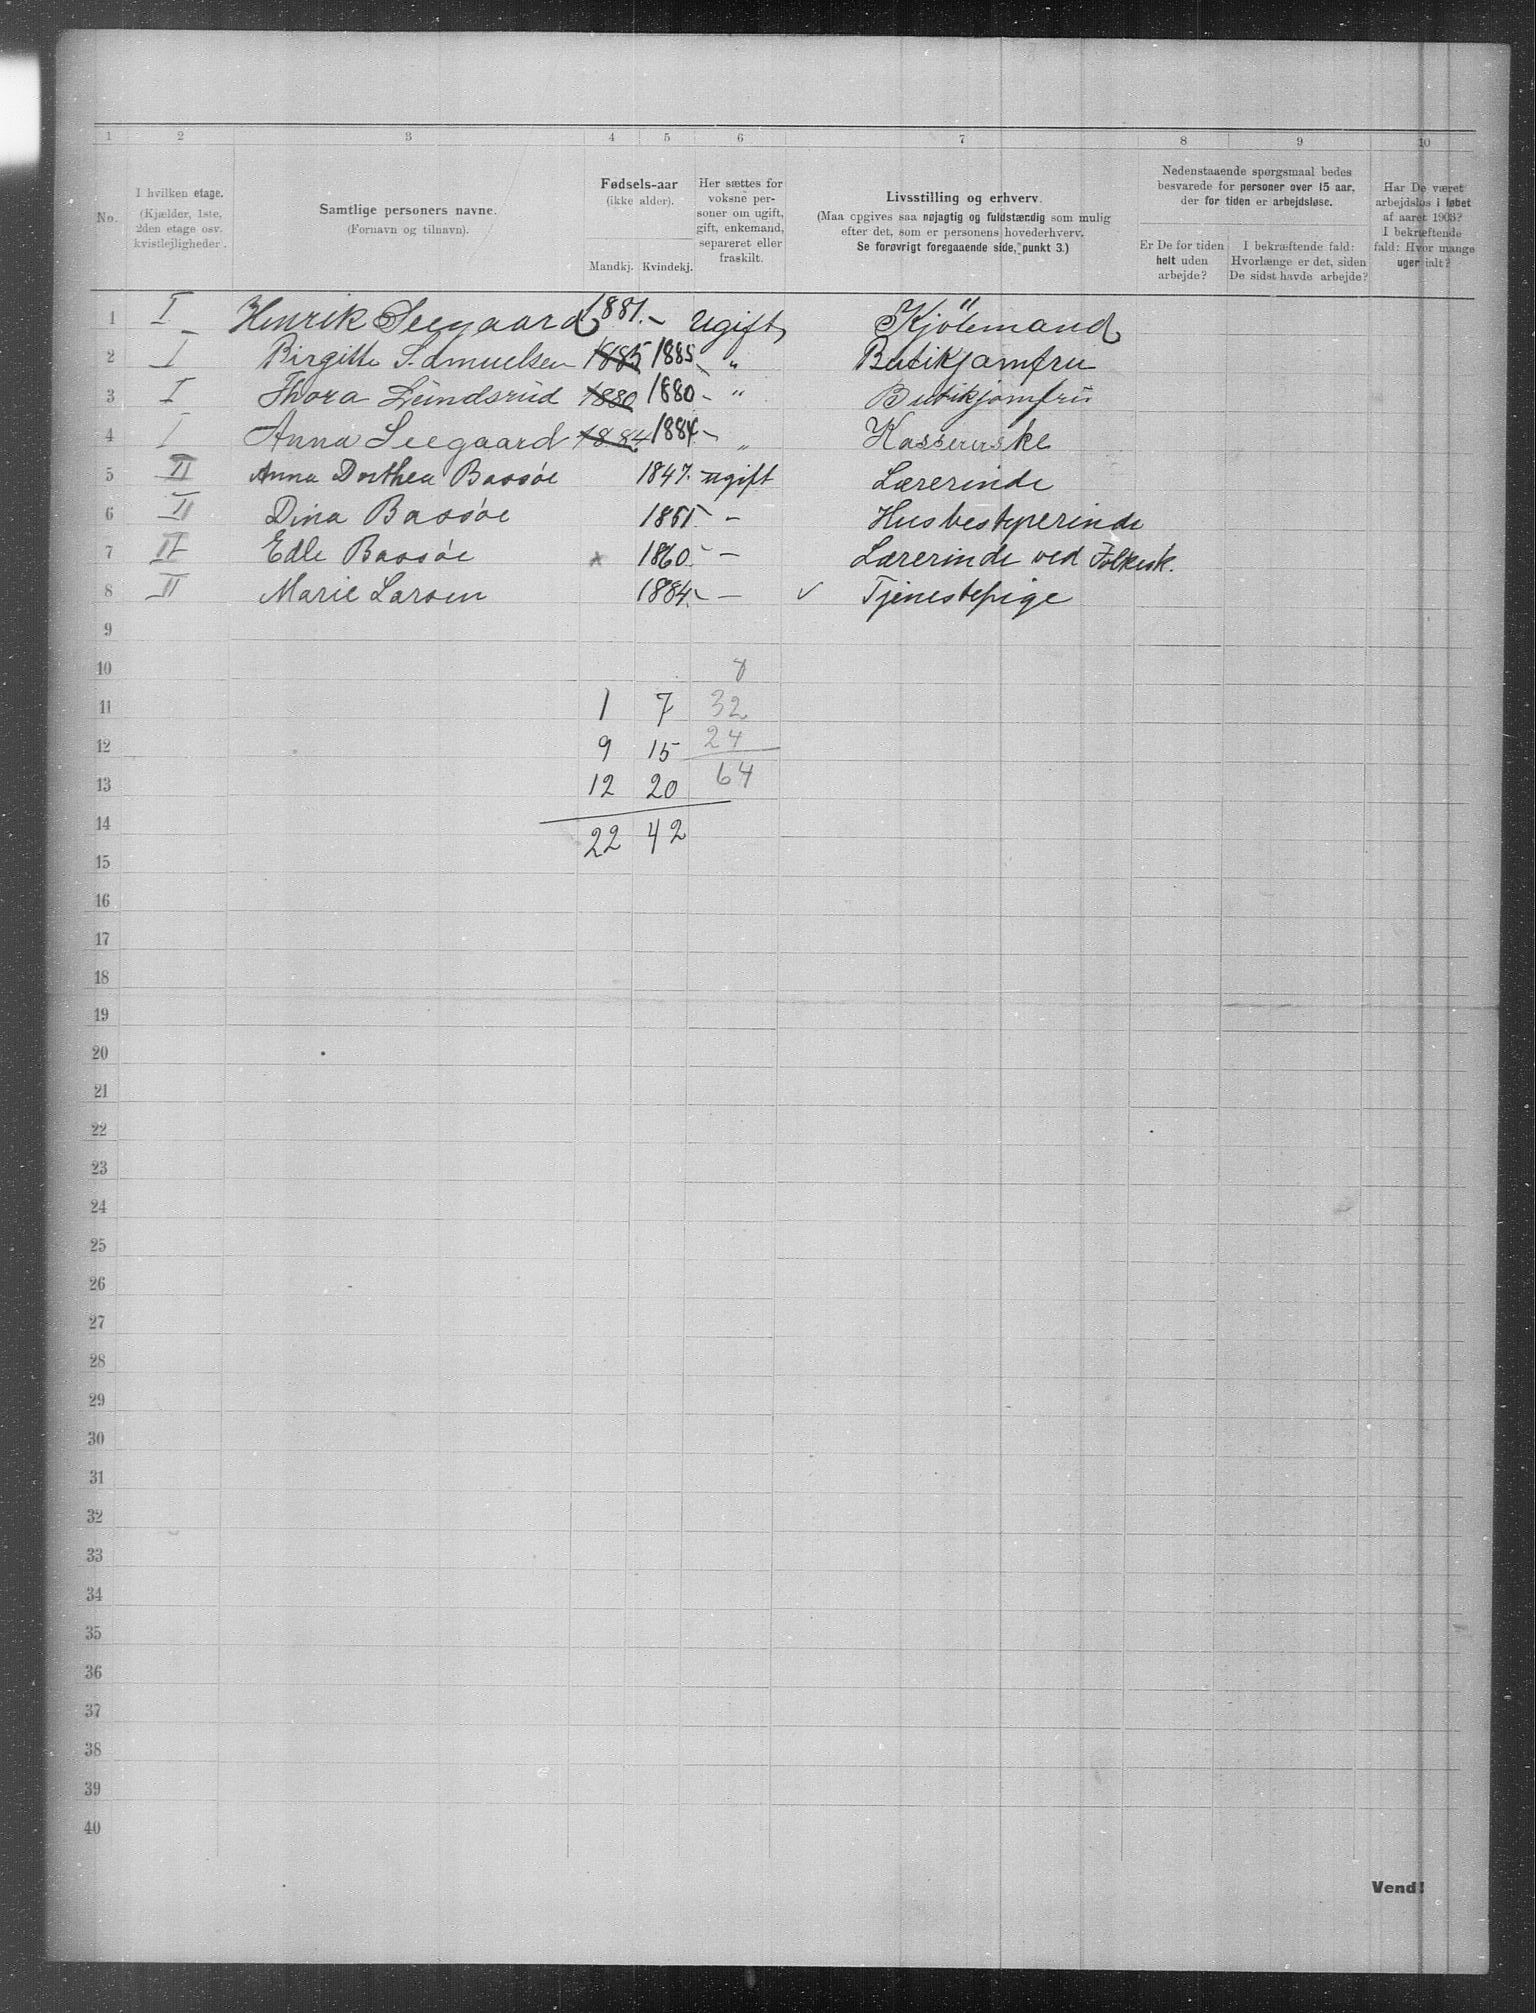 1 2 3 4 5 6 7 8 9 10
No.
I hvilken etage.
(Kjælder, 1ste,
2den etage osv.
kvistlejligheder.
Samtlige personers navne.
(Fornavn og tilnavn).
Fødsels-aar
(ikke alder).
Mandkj. Kvindekj.
Her sættes for
voksne per-
soner om ugift,
gift, enkemand,
separeret eller
fraskilt.
Livsstilling og erhverv.
(Maa opgives saa nøjagtig og fuldstændig som mulig
efter det, som er personens hovederhverv.
Se forøvrigt foregaaende side, punkt 3.)
Nedenstaaende spørgsmaal bedes
besvarede for personer over 15 aar,
der for tiden er arbejdsløse.
Er De for tiden
helt uden
arbejde?
I bekræftende fald:
Hvorlænge er det, siden
De sidst havde arbejde?
Har De været
arbejdsløs i løbet
af aaret 1903?
I bekræftende
fald: Hvor mange
uger ialt?
1 I Henrik Seegaard 1881.- Ugift Kjötemand
2 I Birgitte Samuelsen 1885 1885 - " Butikjomfru
3 I Thora Lundsrud 1880 1880 - " Butikjomfru
4 I Anna Seegaard 1884 1884 - " Kassererske
5 II Anna Dorthea Bassøe 1847. ugift Lærerinde
6 II Dina Bassøe 1851 - Husbestyrerinde
7 II Edle Bassøe 1860 - - Lærerinde ved Folkesk.
8 II Marie Larsen 1884. - - ✓ Tjenestepige
9
10 8
11 1 7 32
12 9 15 24
13 12 20 64
14 22 42
15
16
17
18
19
20
21
22
23
24
25
26
27
28
29
30
31
32
33
34
35
36
37
38
39
40
Vend!